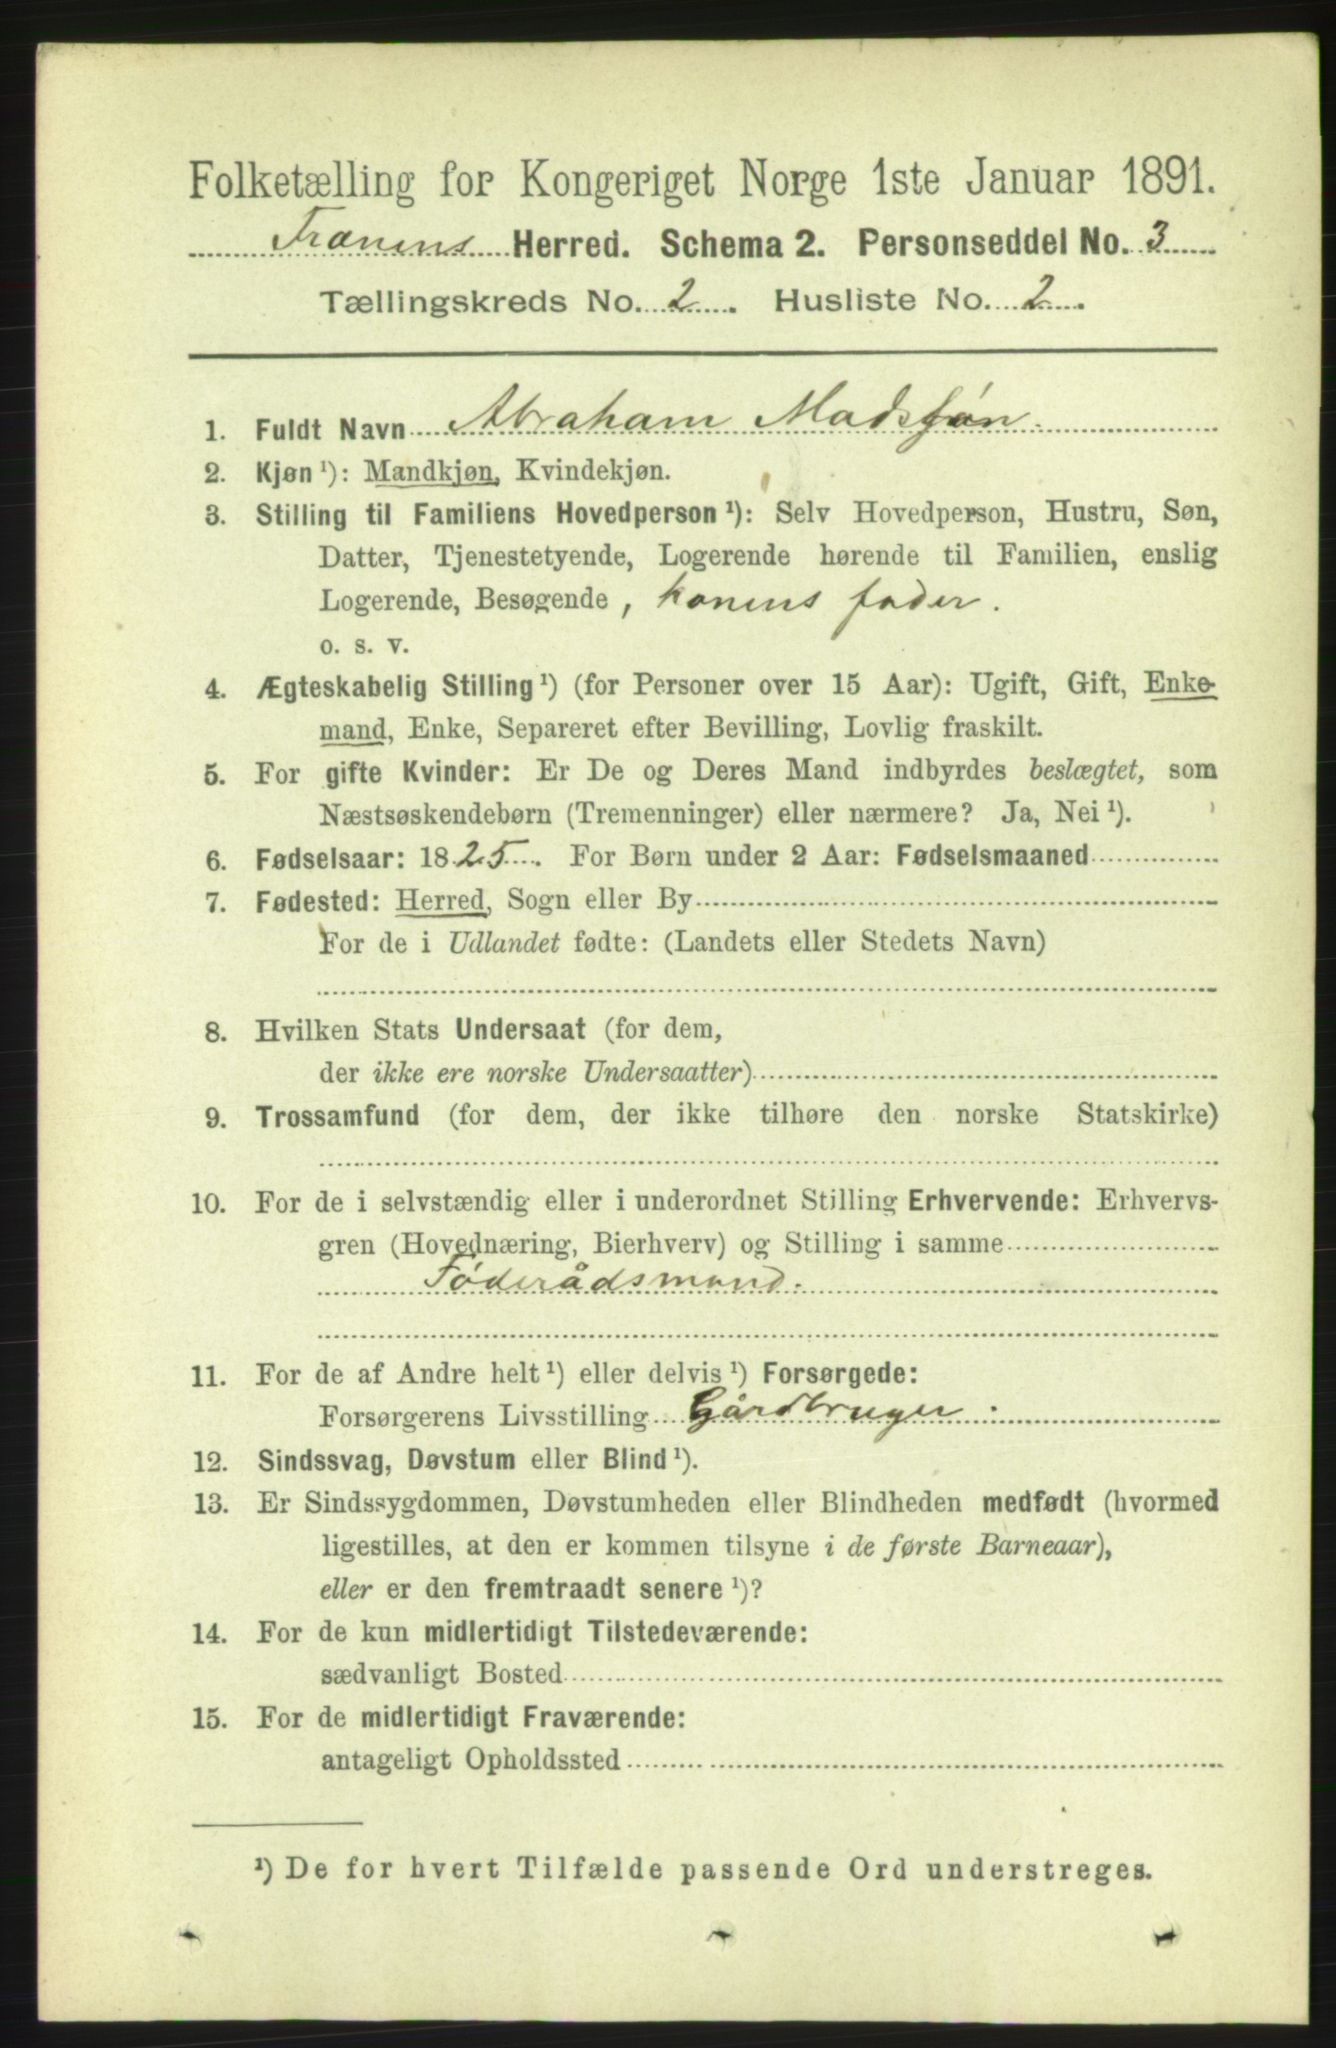 Folketælling for Kongeriget Norge 1ste Januar 1891.
Frænens Herred. Schema 2. Personseddel No. 3
Tællingskreds No. 2. Husliste No. 2.
1. Fuldt Navn Abraham Madsøn.
2. Kjøn ¹): Mandkjøn, Kvindekjøn.
3. Stilling til Familiens Hovedperson ¹): Selv Hovedperson, Hustru, Søn,
Datter, Tjenestetyende, Logerende hørende til Familien, enslig
Logerende, Besøgende, konens fader.
o. s. v.
4. Ægteskabelig Stilling ¹) (for Personer over 15 Aar): Ugift, Gift, Enke-
mand, Enke, Separeret efter Bevilling, Lovlig fraskilt.
5. For gifte Kvinder: Er De og Deres Mand indbyrdes beslægtet, som
Næstsøskendebørn (Tremenninger) eller nærmere? Ja, Nei ¹).
6. Fødselsaar: 1825. For Børn under 2 Aar: Fødselsmaaned
7. Fødested: Herred, Sogn eller By
For de i Udlandet fødte: (Landets eller Stedets Navn)
8. Hvilken Stats Undersaat (for dem,
der ikke ere norske Undersaatter)
9. Trossamfund (for dem, der ikke tilhøre den norske Statskirke)
10. For de i selvstændig eller i underordnet Stilling Erhvervende: Erhvervs-
gren (Hovednæring, Bierhverv) og Stilling i samme
Føderådsmand.
11. For de af Andre helt ¹) eller delvis ¹) Forsørgede:
Forsørgerens Livsstilling Gårdbruger.
12. Sindssvag, Døvstum eller Blind ¹).
13. Er Sindssygdommen, Døvstumheden eller Blindheden medfødt (hvormed
ligestilles, at den er kommen tilsyne i de første Barneaar),
eller er den fremtraadt senere ¹)?
14. For de kun midlertidigt Tilstedeværende:
sædvanligt Bosted
15. For de midlertidigt Fraværende:
antageligt Opholdssted
¹) De for hvert Tilfælde passende Ord understreges.